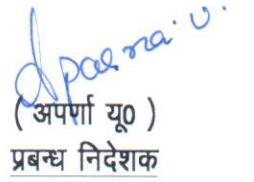 Aparna U.
( अपर्णा यू0 )
प्रबन्ध निदेशक